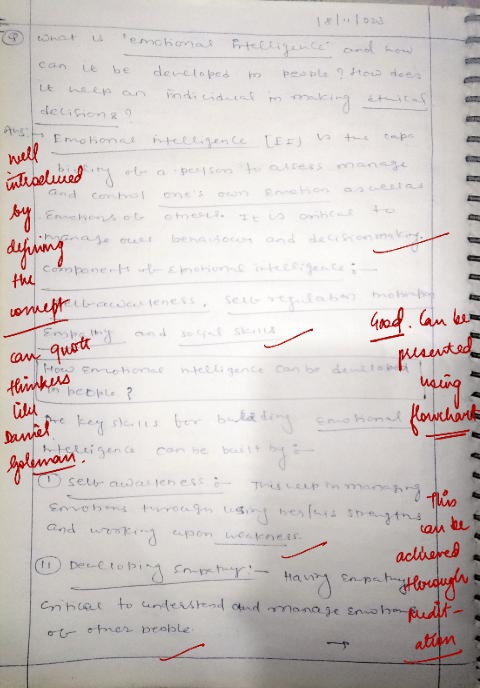 18/11/023
Q What is 'emotional intelligence' and how
can it be developed in people? How does
it help an individual in making ethical
decisions?
Ans:→ Emotional intelligence [EI] is the capa
bility of a person to assess manage
and control one's own emotion as well as
Emotions of others. It is critical to
manage ours behaviour and decision making.
Components of Emotional intelligence :-
self-awareness, Self regulation, motivation
Empathy and social skills
How Emotional intelligence can be developed
in people?
The key skills for building emotional
intelligence can be built by :-
(I) Self awareness :- This help in managing
Emotions through using her/his strengths
and working upon weakness.
(II) Developing Empathy :- Having Empathy
critical to understand and manage Emotions
of other people.
well
introduced
by
defining
the
concept
can quote
thinkers
like
Daniel
Goleman.
Good. Can be
presented
using
flowchart
This
can be
achieved
through
medit-
ation